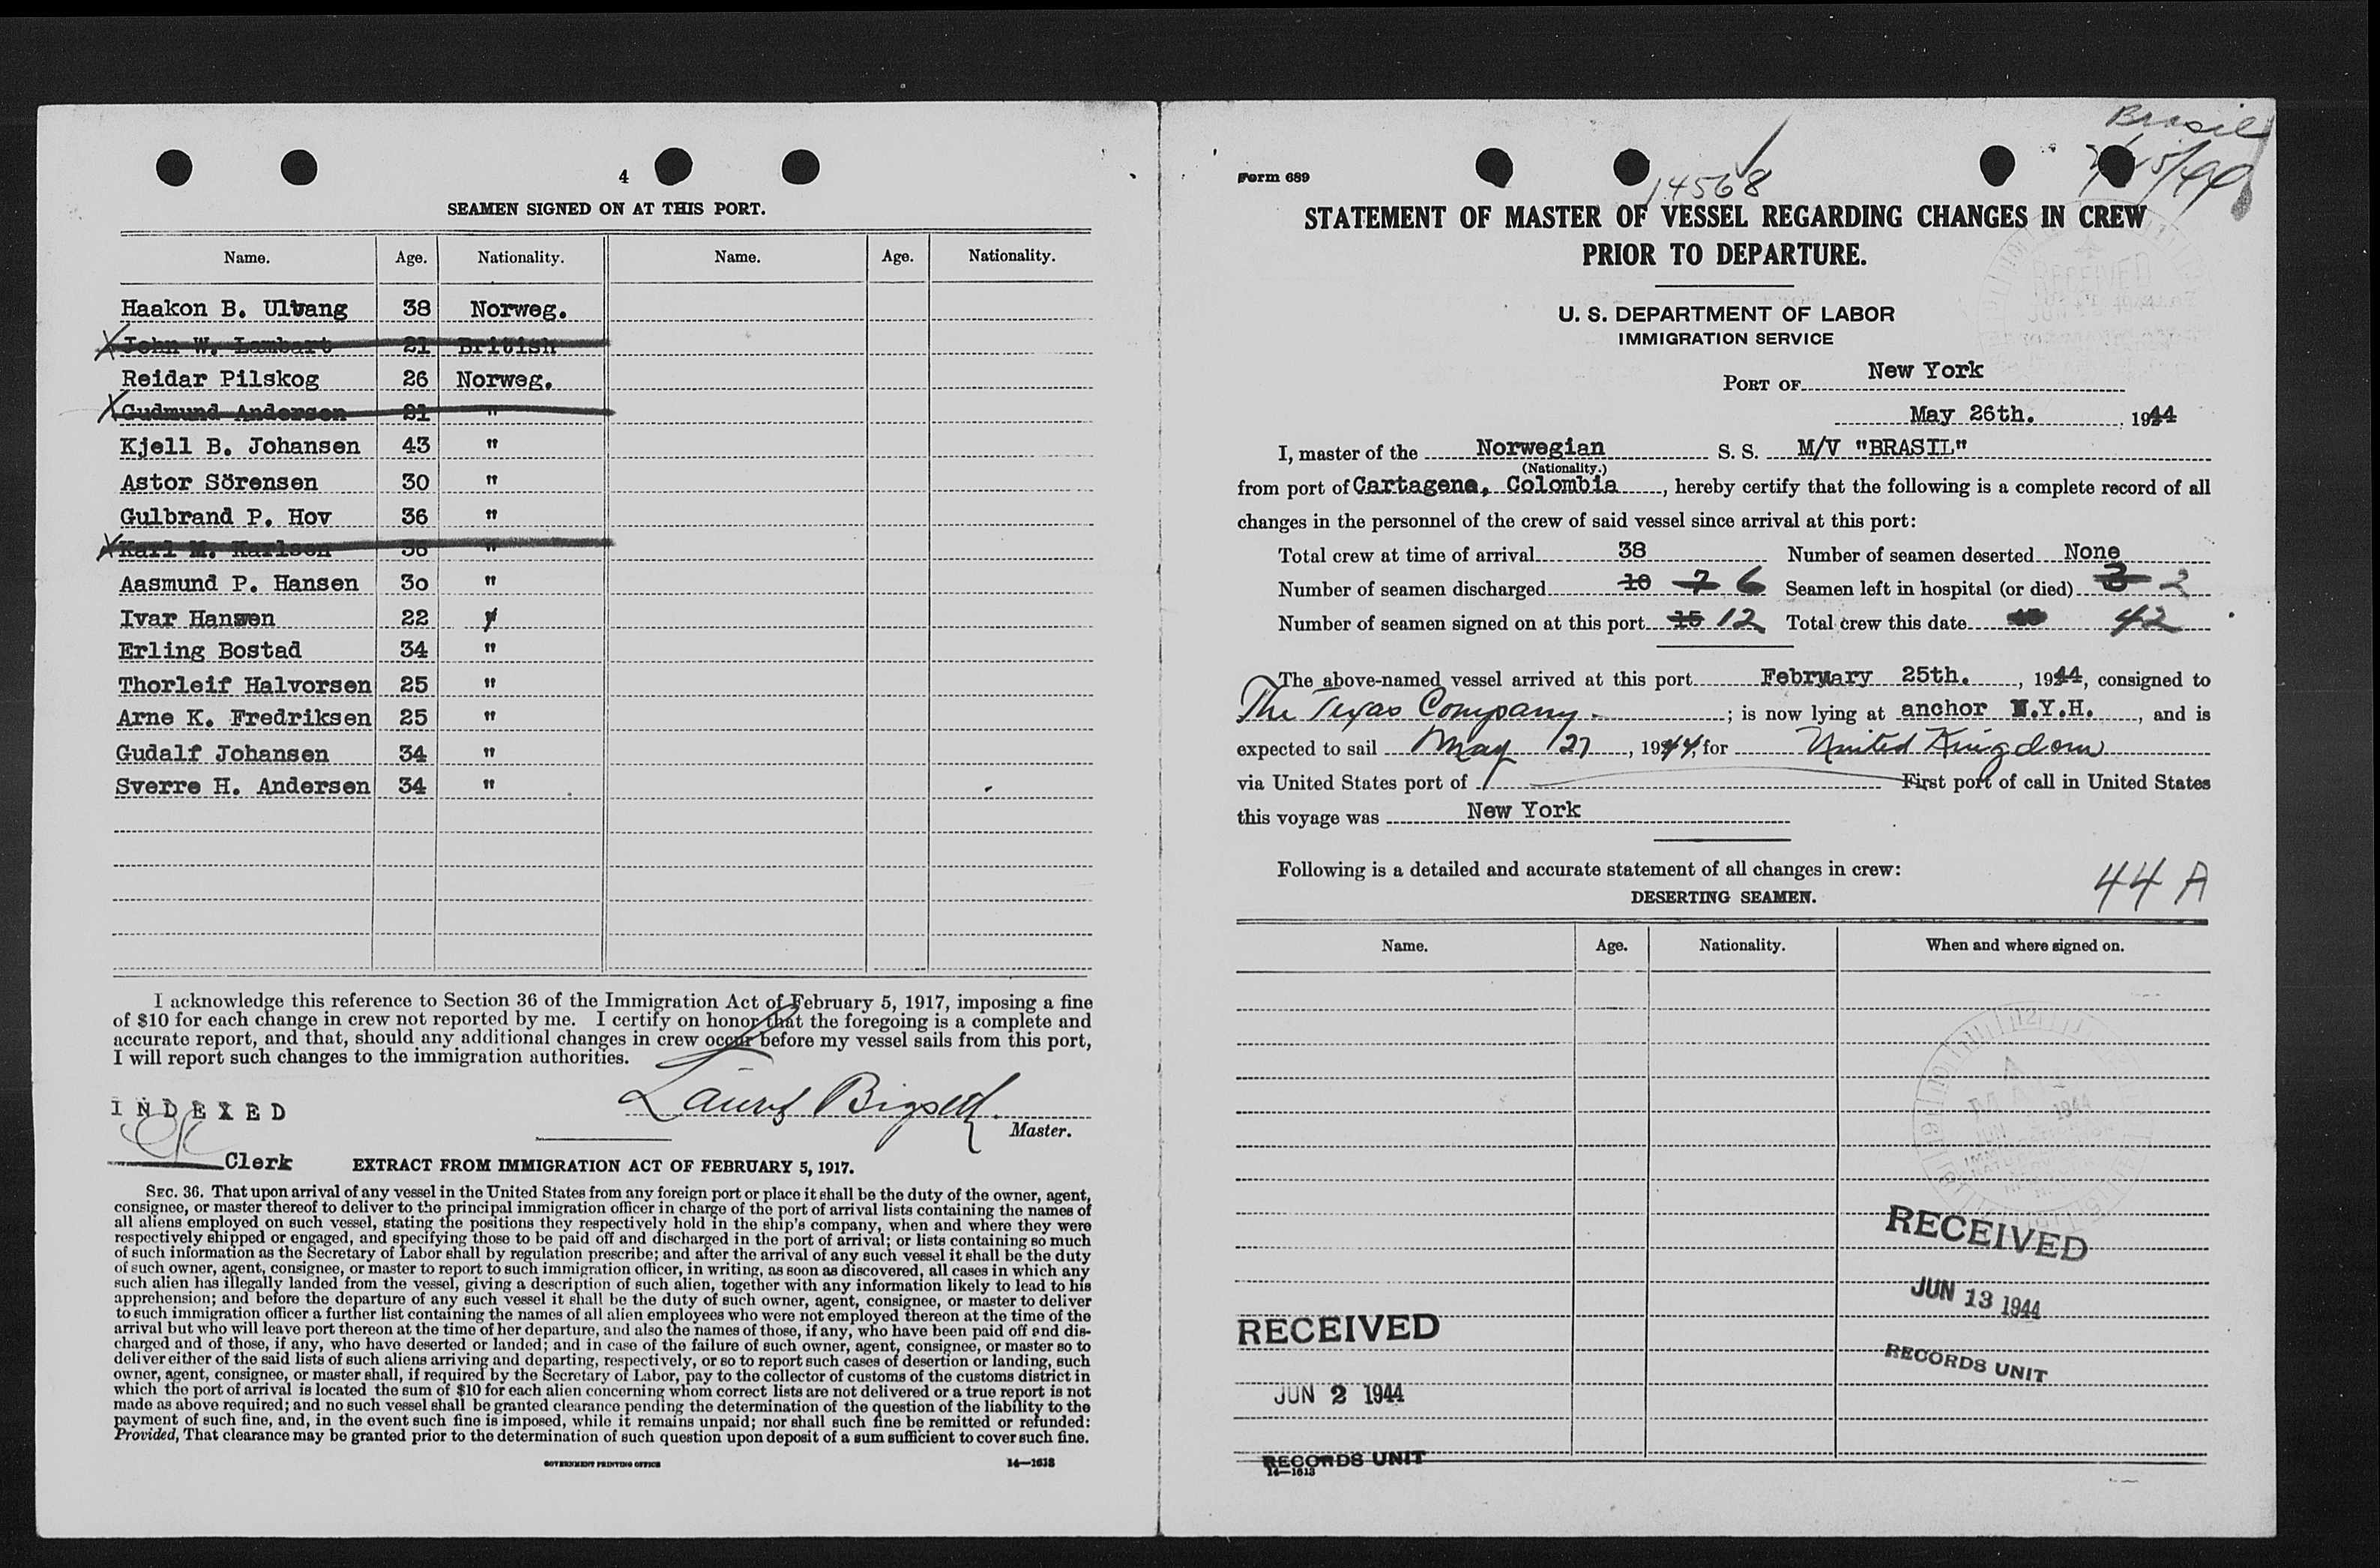 4
SEAMEN SIGNED ON AT THIS PORT.
Name. Age. Nationality. Name. Age. Nationality.
Haakon B. Ulvang 38 Norweg.
John W. Lambart 21 British
Reidar Pilskog 26 Norweg.
Gudmund Andersen 21 "
Kjell B. Johansen 43 "
Astor Sörensen 30 "
Gulbrand P. Hov 36 "
Karl M. Karlsen 36 "
Aasmund P. Hansen 3o "
Ivar Hansen 22 "
Erling Bostad 34 "
Thorleif Halvorsen 25 "
Arne K. Fredriksen 25 "
Gudalf Johansen 34 "
Sverre H. Andersen 34 "
I acknowledge this reference to Section 36 of the Immigration Act of February 5, 1917, imposing a fine
of $10 for each change in crew not reported by me. I certify on honor that the foregoing is a complete and
accurate report, and that, should any additional changes in crew occur before my vessel sails from this port,
I will report such changes to the immigration authorities.
INDEXED
Master.
Clerk
EXTRACT FROM IMMIGRATION ACT OF FEBRUARY 5, 1917.
SEC. 36. That upon arrival of any vessel in the United States from any foreign port or place it shall be the duty of the owner, agent,
consignee, or master thereof to deliver to the principal immigration officer in charge of the port of arrival lists containing the names of
all aliens employed on such vessel, stating the positions they respectively hold in the ship's company, when and where they were
respectively shipped or engaged, and specifying those to be paid off and discharged in the port of arrival; or lists containing so much
of such information as the Secretary of Labor shall by regulation prescribe; and after the arrival of any such vessel it shall be the duty
of such owner, agent, consignee, or master to report to such immigration officer, in writing, as soon as discovered, all cases in which any
such alien has illegally landed from the vessel, giving a description of such alien, together with any information likely to lead to his
apprehension; and before the departure of any such vessel it shall be the duty of such owner, agent, consignee, or master to deliver
to such immigration officer a further list containing the names of all alien employees who were not employed thereon at the time of the
arrival but who will leave port thereon at the time of her departure, and also the names of those, if any, who have been paid off and dis-
charged and of those, if any, who have deserted or landed; and in case of the failure of such owner, agent, consignee, or master so to
deliver either of the said lists of such aliens arriving and departing, respectively, or so to report such cases of desertion or landing, such
owner, agent, consignee, or master shall, if required by the Secretary of Labor, pay to the collector of customs of the customs district in
which the port of arrival is located the sum of $10 for each alien concerning whom correct lists are not delivered or a true report is not
made as above required; and no such vessel shall be granted clearance pending the determination of the question of the liability to the
payment of such fine, and, in the event such fine is imposed, while it remains unpaid; nor shall such fine be remitted or refunded:
Provided, That clearance may be granted prior to the determination of such question upon deposit of a sum sufficient to cover such fine.
GOVERNMENT PRINTING OFFICE 14—1613
Brasil
Form 689
14568
STATEMENT OF MASTER OF VESSEL REGARDING CHANGES IN CREW
PRIOR TO DEPARTURE.
U. S. DEPARTMENT OF LABOR
IMMIGRATION SERVICE
PORT OF New York
May 26th. 1944
I, master of the Norwegian S. S. M/V "BRASIL"
(Nationality.)
from port of Cartagena, Colombia, hereby certify that the following is a complete record of all
changes in the personnel of the crew of said vessel since arrival at this port:
Total crew at time of arrival 38 Number of seamen deserted None
Number of seamen discharged 10 7 6 Seamen left in hospital (or died) 3 2
Number of seamen signed on at this port 15 12 Total crew this date 42
The above-named vessel arrived at this port February 25th., 1944, consigned to
The Texas Company; is now lying at anchor N.Y.H., and is
expected to sail May 27, 1944, for United Kingdom
via United States port of First port of call in United States
this voyage was New York
Following is a detailed and accurate statement of all changes in crew:
44 A
DESERTING SEAMEN.
Name. Age. Nationality. When and where signed on.
RECEIVED
JUN 13 1944
RECORDS UNIT
RECEIVED
JUN 2 1944
RECORDS UNIT
14—1613